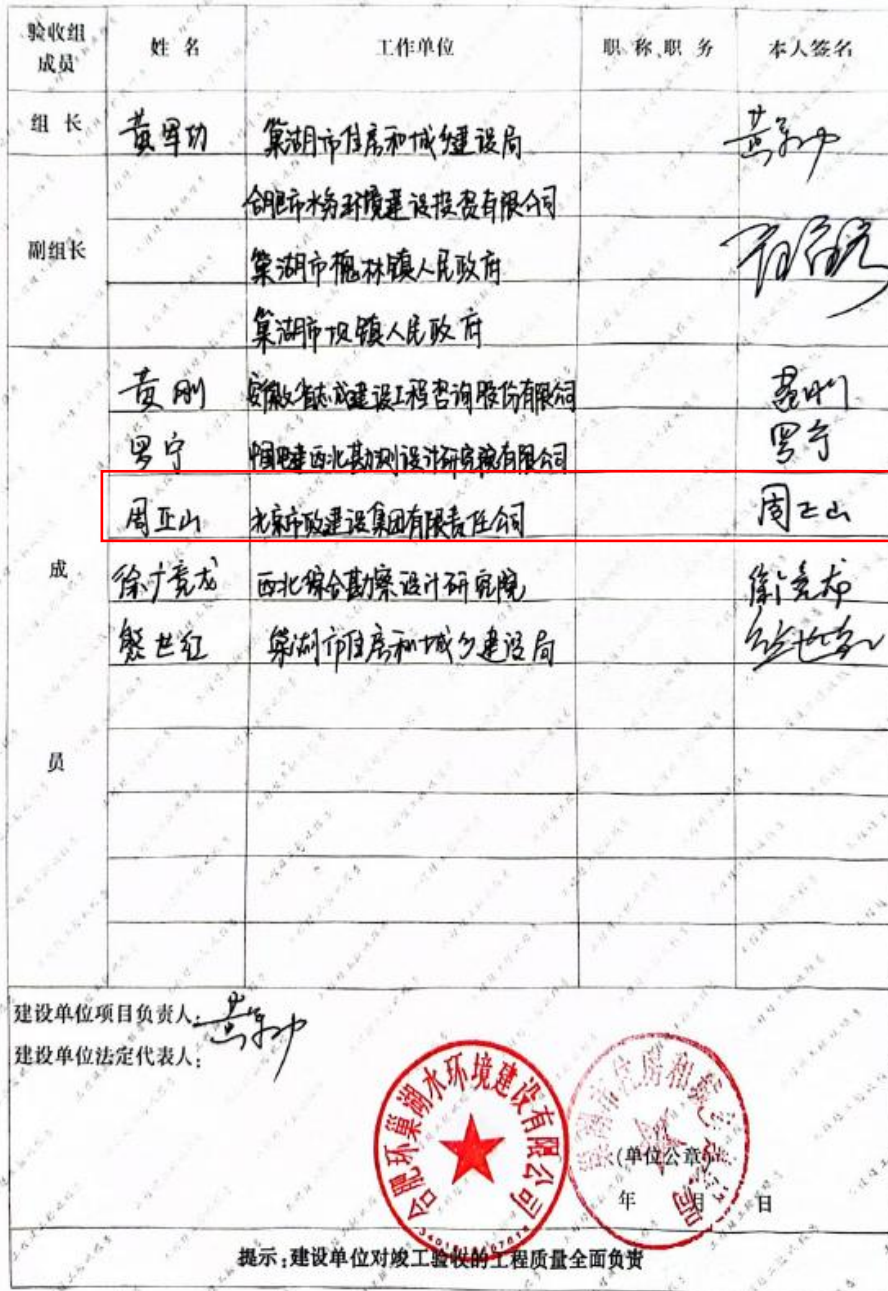 验收组成员 姓名 工作单位 职称、职务 本人签名
组长 黄军功 巢湖市住房和城乡建设局
副组长 合肥市水务环境建设投资有限公司
巢湖市槐林镇人民政府
巢湖市坝镇人民政府
成员
黄刚 安徽省志成建设工程咨询股份有限公司 黄刚
罗宁 中国电建西北勘测设计研究院有限公司 罗宁
周正山 北京市政建设集团有限责任公司 周正山
徐广竟龙 西北综合勘察设计研究院
世红 巢湖市住房和城乡建设局
建设单位项目负责人:
建设单位法定代表人:
合肥环巢湖水环境建设有限公司
(单位公章)
年 月 日
提示:建设单位对竣工验收的工程质量全面负责